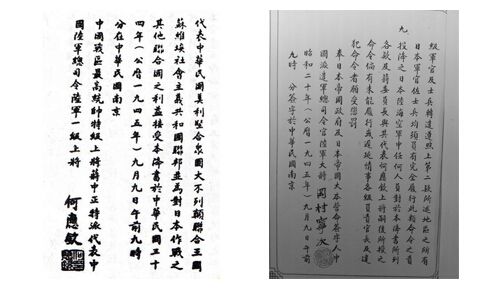 級軍官及士兵轉達遵照上第二款所述地區之所有
日本軍官佐士兵均須負有完全履行此類命令之責
九、投降之日本陸海空軍中任何人員對於本降書所列
各款及蔣委員長與其代表何應欽上將嗣後所授之
命令倘有未能履行或遲延情事各級負責官長及違
犯命令者願受懲罰
奉日本帝國政府及日本帝國大本營命簽字人中
國派遣軍總司令官陸軍大將 岡村寧次
昭和二十年(公曆一九四五年)九月九日午前
九時 分簽字於中華民國南京
代表中華民國美利堅合衆國大不列顛聯合王國
蘇維埃社會主義共和國聯邦並為對日本作戰之
其他聯合國之利益接受本降書於中華民國三十
四年(公曆一九四五年)九月九日午前九時
分在中華民國南京
中國戰區最高統帥特級上將蔣中正特派代表中
國陸軍總司令陸軍一級上將
何應欽